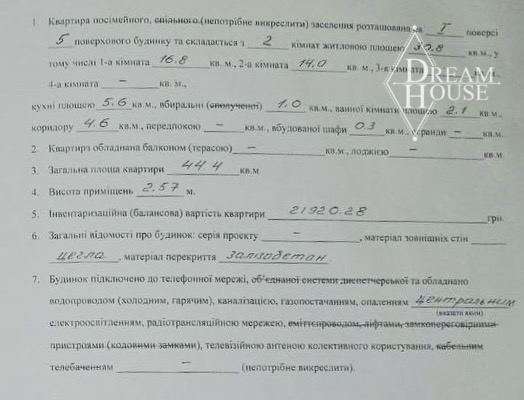 1. Квартира посімейного, спільного (непотрібне викреслити) заселення розташована на I поверсі
5 поверхового будинку та складається з 2 кімнат житловою площею 30.8 кв.м., у
тому числі 1-а кімната 16.8 кв. м., 2-а кімната 14,0 кв. м., 3-я кімната
4-а кімната – кв. м.,
кухні площею 5.6 кв.м., вбиральні (сполученої) 1.0 кв.м., ванної кімнати площею 2.1 кв.м.,
коридору 4.6 кв.м., передпокою – кв.м., вбудованої шафи 0.3 кв.м., веранди – кв.м.
DREAM
HOUSE
2. Квартира обладнана балконом (терасою) – кв.м., лоджією – кв.м
3. Загальна площа квартири 44.4 кв.м
4. Висота приміщень 2,57 м.
5. Інвентаризаційна (балансова) вартість квартири 21920.28 грн.
6. Загальні відомості про будинок: серія проекту –, матеріал зовнішніх стін
цегла, матеріал перекриття залізобетон
7. Будинок підключено до телефонної мережі, об'єднаної системи диспетчерської та обладнано
водопроводом (холодним, гарячим), каналізацією, газопостачанням, опаленням центральним
(вказати яким)
електроосвітленням, радіотрансляційною мережею, сміттєпроводом, ліфтами, замкопереговірними
пристроями (кодовими замками), телевізійною антеною колективного користування, кабельним
телебаченням – (непотрібне викреслити).